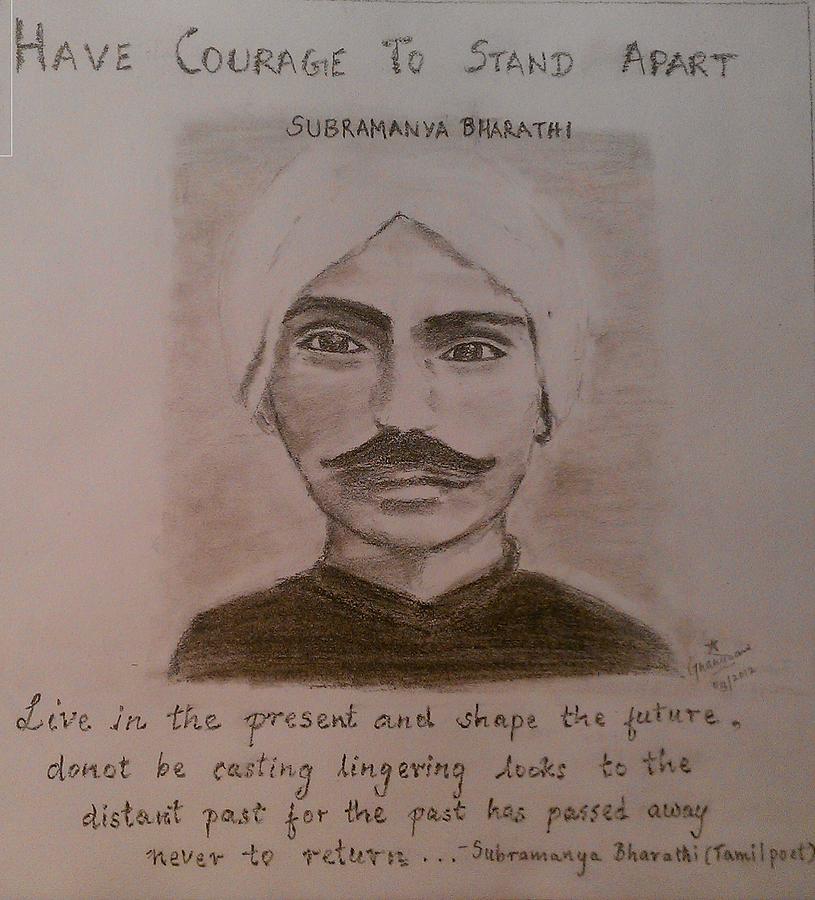 HAVE COURAGE TO STAND APART
SUBRAMANYA BHARATHI
08/2012
Live in the present and shape the future.
donot be casting lingering looks to the
distant past for the past has passed away
never to return... - Subramanya Bharathi (Tamil poet)